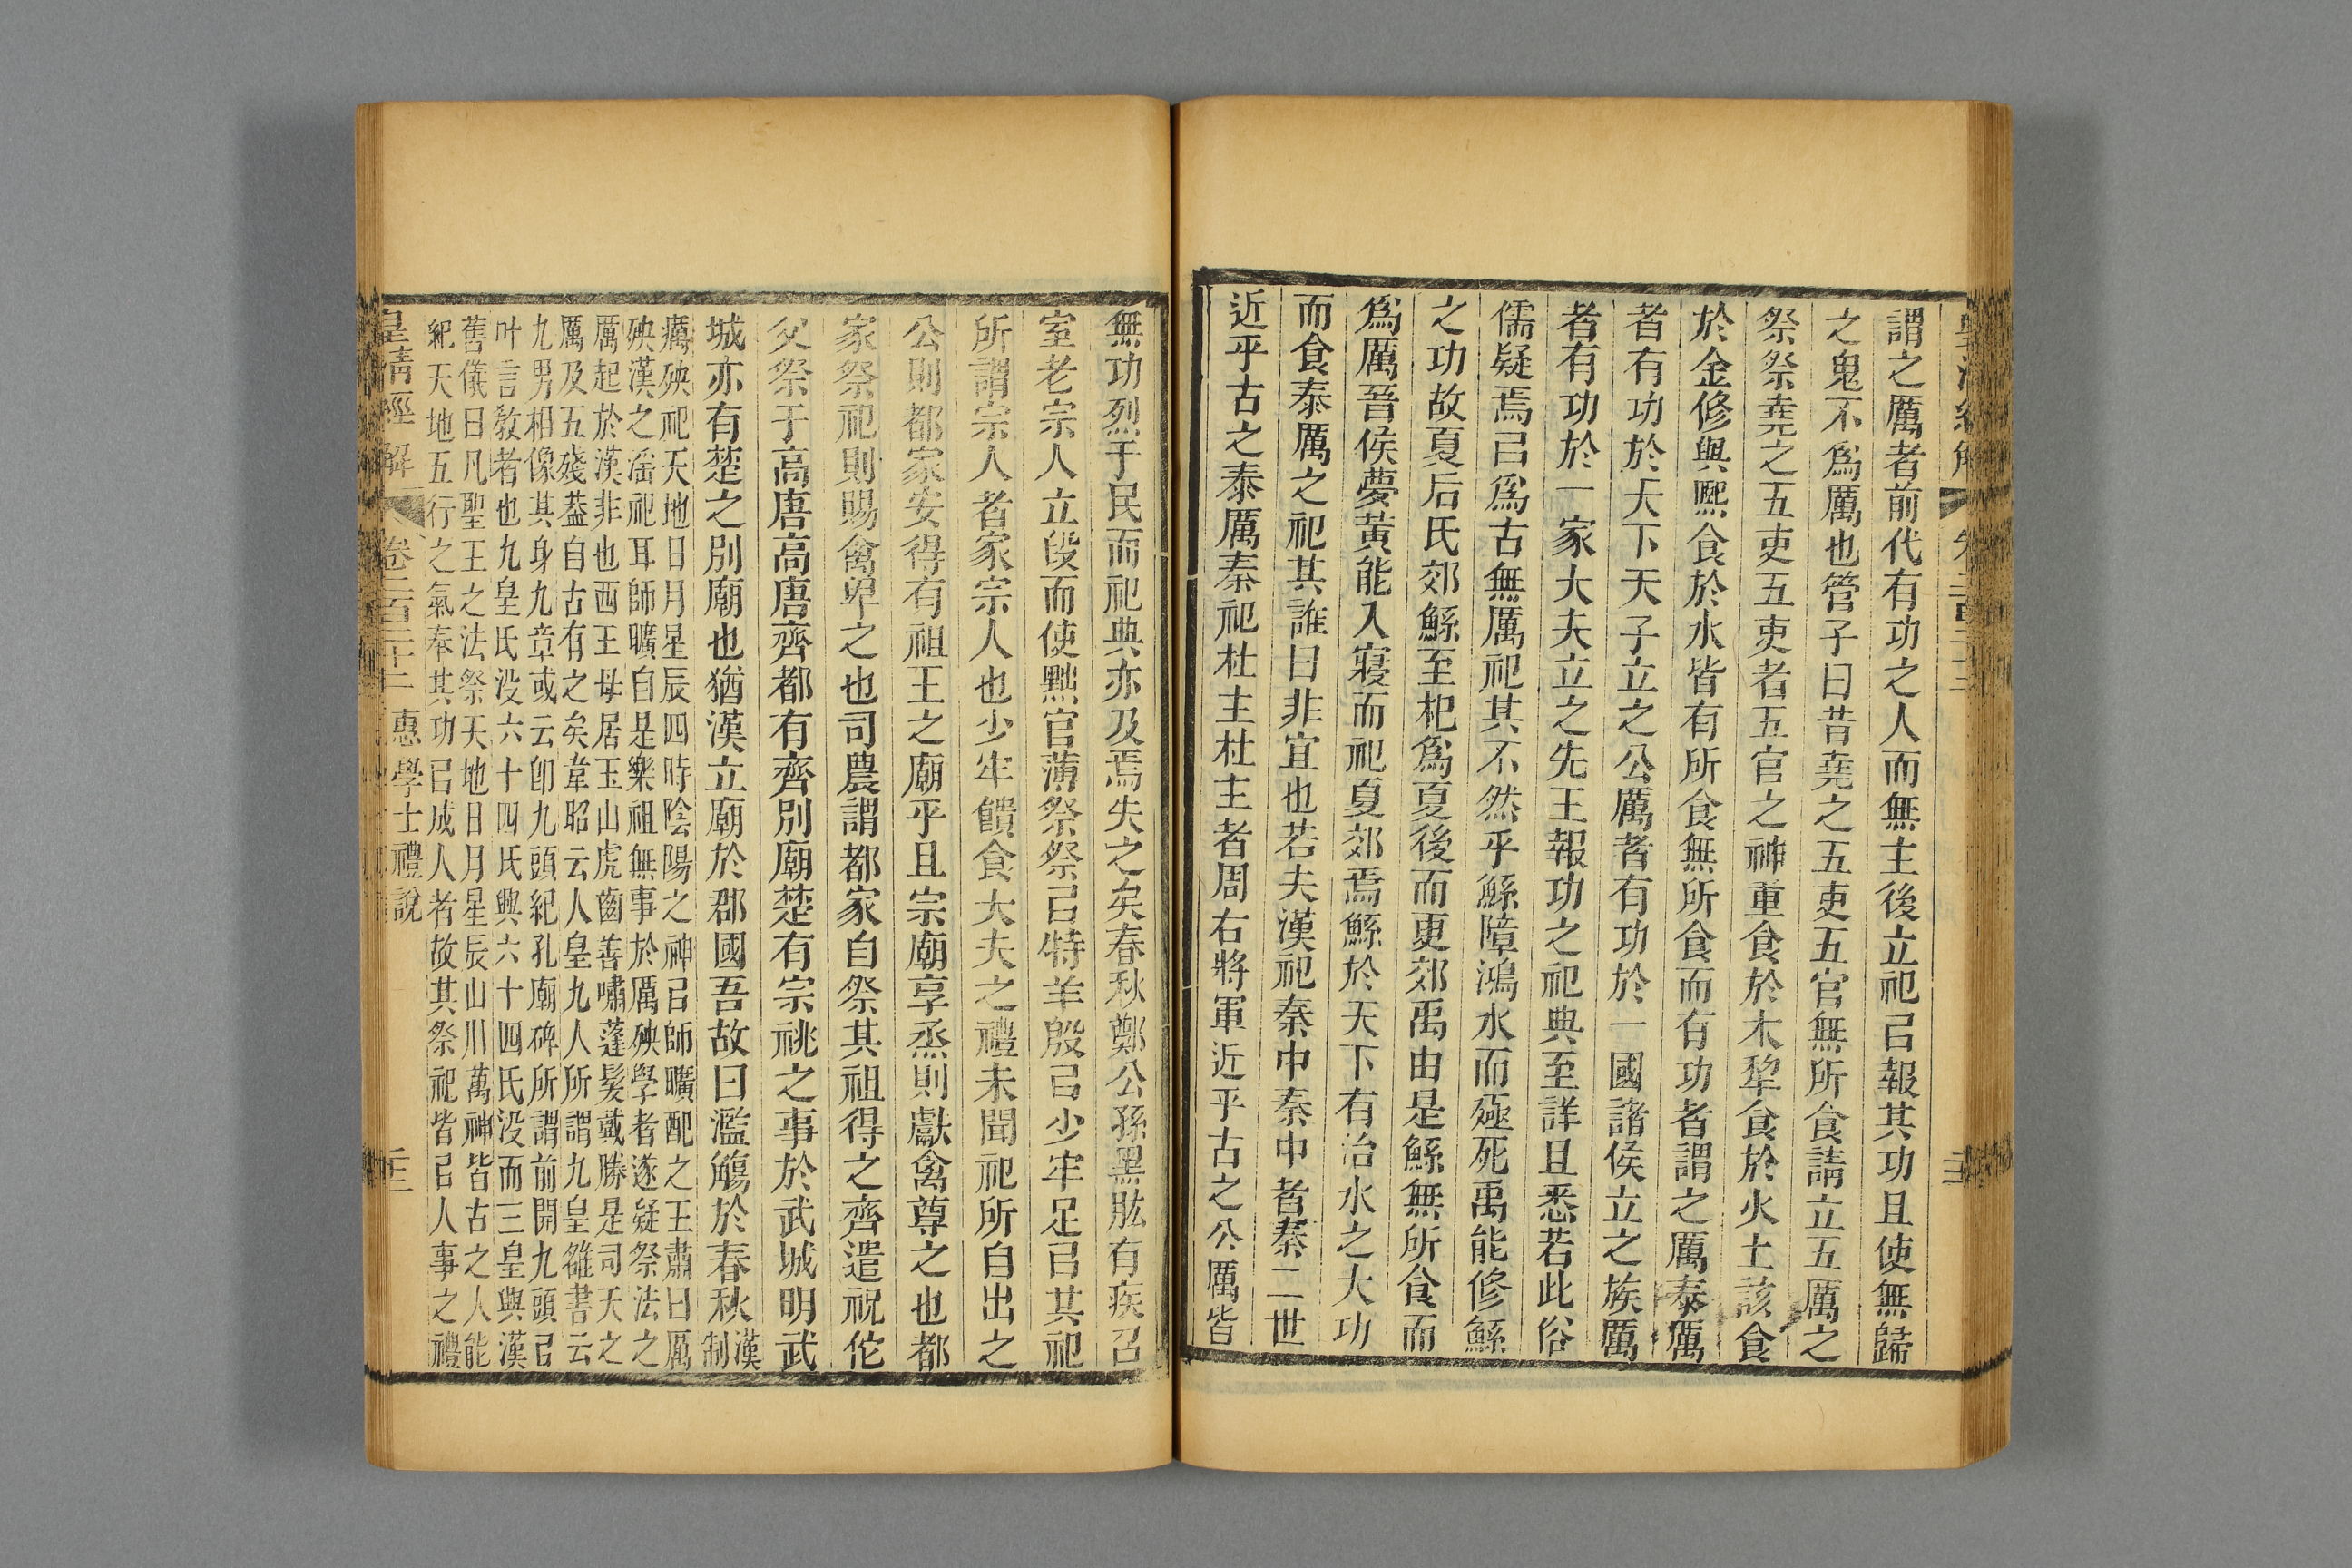 謂之厲者前代有功之人而無主後立祀㠯報其功且使無歸
之鬼不爲厲也管子曰昔堯之五吏五官無所食請立五厲之
祭祭堯之五吏五吏者五官之神重食於木犂食於火土該食
於金修與熙食於水皆有所食無所食而有功者謂之厲泰厲
者有功於天下天子立之公厲者有功於一國諸侯立之族厲
者有功於一家大夫立之先王報功之祀典至詳且悉若此俗
儒疑焉㠯爲古無厲祀其不然乎鯀障鴻水而殛死禹能修鯀
之功故夏后氏郊鯀至杞爲夏後而更郊禹由是鯀無所食而
爲厲晉侯夢黃能入寢而祀夏郊焉鯀於天下有治水之大功
而食泰厲之祀其誰曰非宜也若夫漢祀秦中秦中者秦二世
近乎古之泰厲秦祀杜主杜主者周右將軍近乎古之公厲皆
無功烈于民而祀典亦及焉失之矣春秋鄭公孫黑肱有疾召
室老宗人立段而使黜官薄祭祭㠯特羊殷㠯少牢足㠯其祀
所謂宗人者家宗人也少牢饋食大夫之禮未聞祀所自出之
公則都家安得有祖王之廟乎且宗廟享烝則獻禽尊之也都
家祭祀則賜禽卑之也司農謂都家自祭其祖得之齊遣祝佗
父祭于高唐高唐齊都有齊別廟楚有宗祧之事於武城明武
城亦有楚之別廟也猶漢立廟於郡國吾故曰濫觴於春秋漢
制
癘殃祀天地日月星辰四時陰陽之神㠯師曠配之王肅曰厲
殃漢之滛祀耳師曠自是樂祖無事於厲殃學者遂疑祭法之
厲起於漢非也西王母居玉山虎齒善嘯蓬髮戴勝是司天之
厲及五殘葢自古有之矣韋昭云人皇九人所謂九皇雒書云
九男相像其身九章或云卽九頭紀孔廟碑所謂前開九頭㠯
叶言敎者也九皇氏没六十四氏興六十四氏没而三皇興漢
舊儀曰凡聖王之法祭天地日月星辰山川萬神皆古之人能
紀天地五行之氣奉其功㠯成人者故其祭祀皆㠯人事之禮
皇清經解 卷二百二十二 惠學士禮說 三